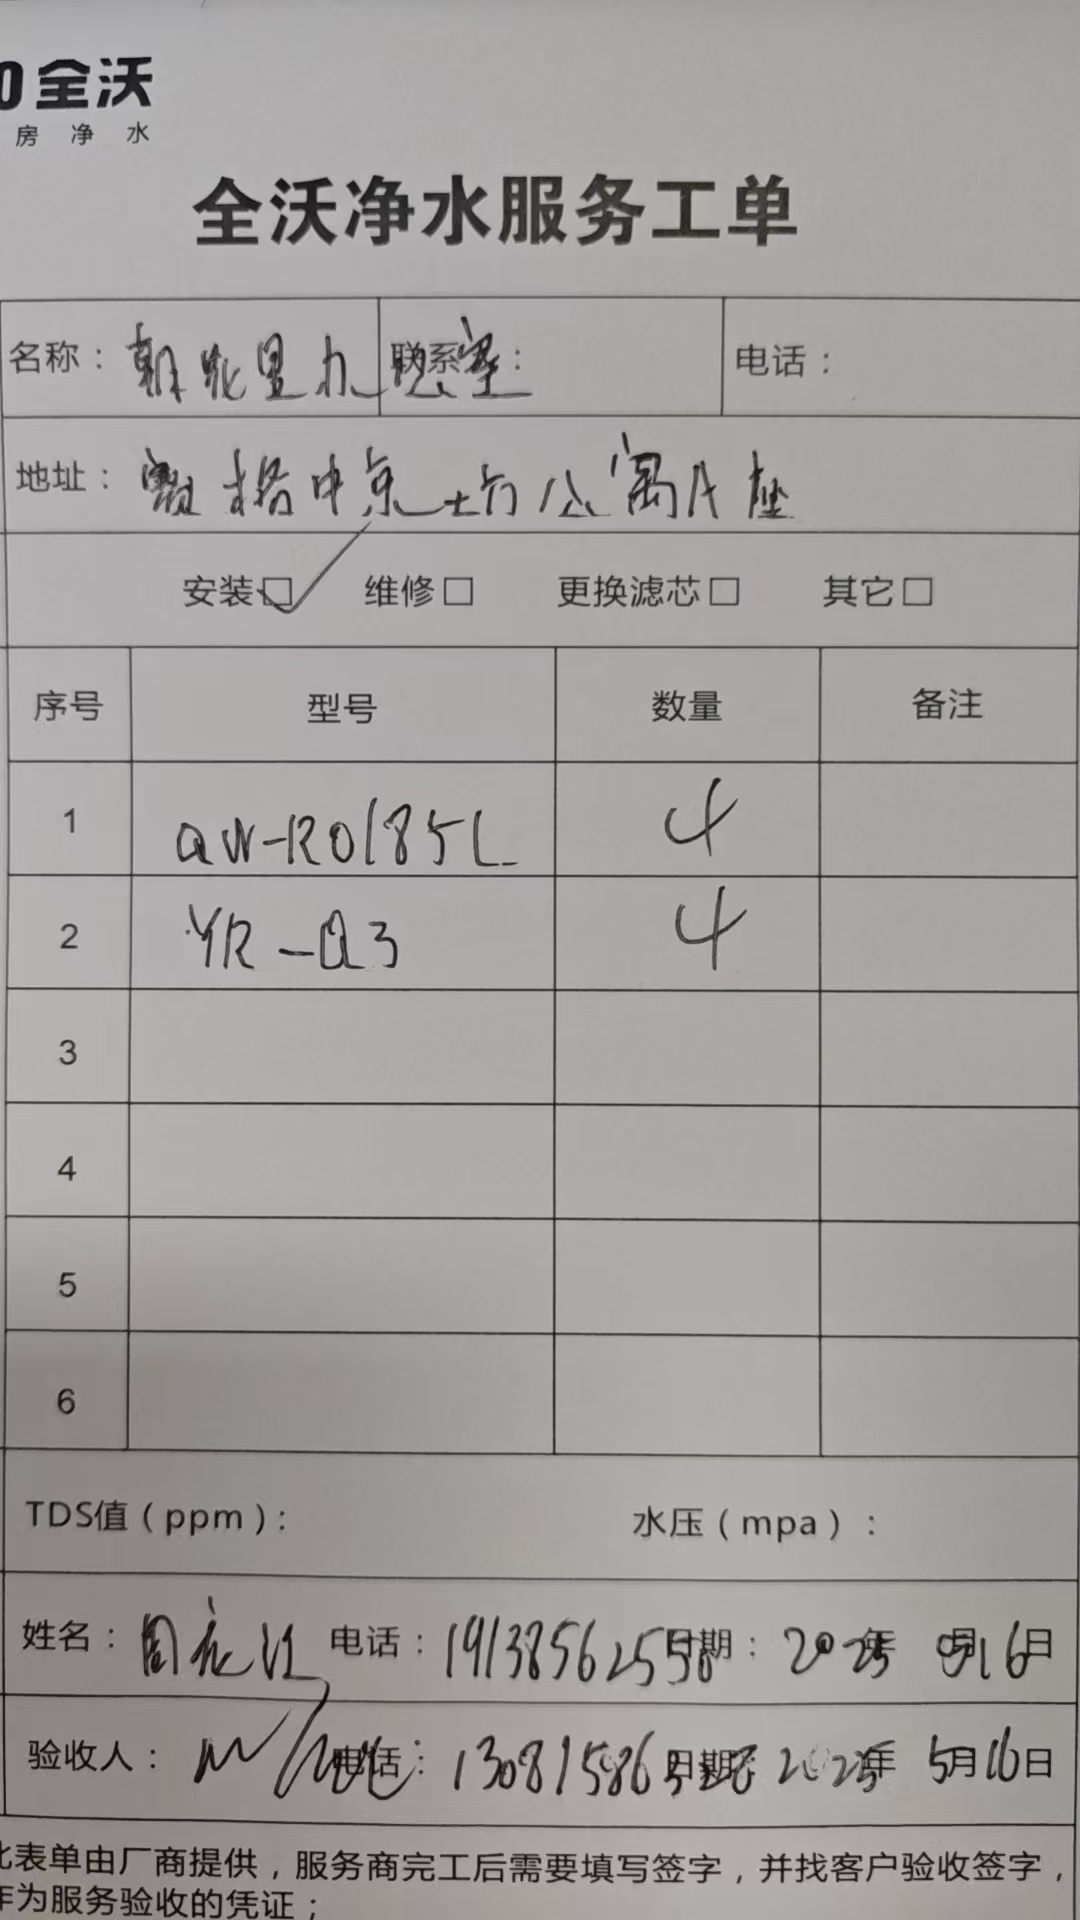 全沃
房 净 水
全沃净水服务工单
名称： 联系 ： 电话：
地址： 公寓A座
安装☑ 维修□ 更换滤芯□ 其它□
序号 型号 数量 备注
1 QW-RO185L 4
2 YR-Q3 4
3
4
5
6
TDS值（ppm）： 水压（mpa）：
姓名： 电话：19138562558 日期：2025年 5月16日
验收人： 电话： 日期： 2025年 5月16日
此表单由厂商提供，服务商完工后需要填写签字，并找客户验收签字，
作为服务验收的凭证；